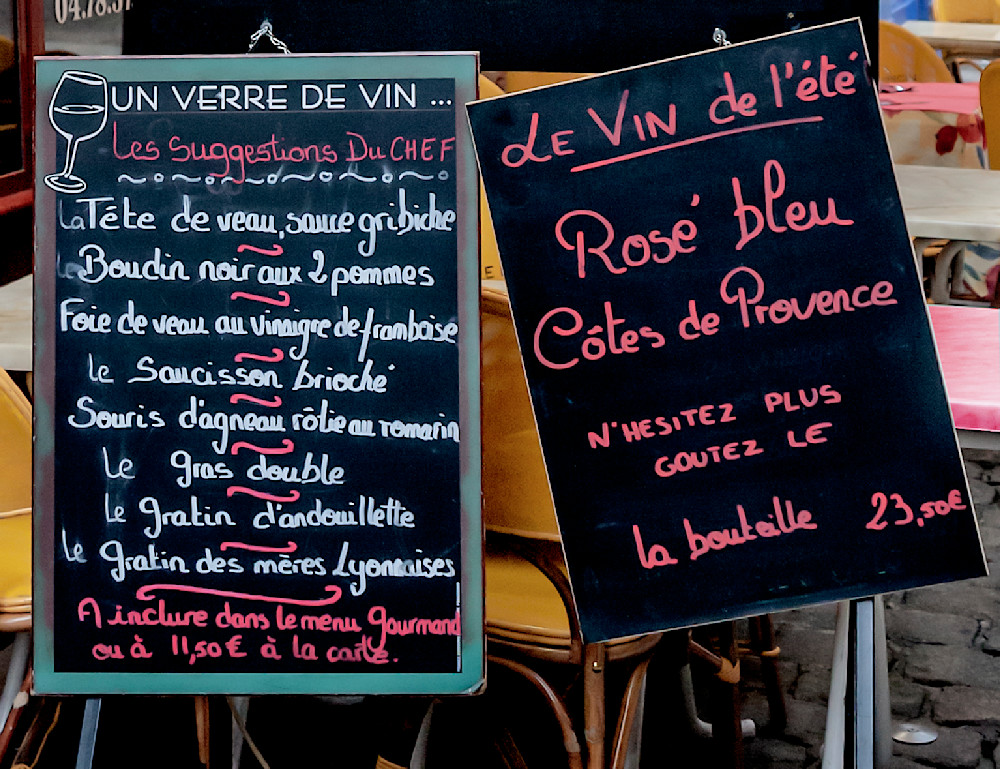 04.78.37
UN VERRE DE VIN ...
Les Suggestions Du CHEF
La Tête de veau, sauce gribiche
Les Boudin noir aux 2 pommes
Foie de veau au vinaigre de framboise
le Saucisson brioché
Souris d'agneau rôtie au romarin
Le gras double
Le gratin d'andouillette
Le gratin des mères Lyonnaises
A inclure dans le menu gourmand
ou à 11,50 € à la carte.
Le Vin de l'été
Rosé bleu
Côtes de Provence
N'HESITEZ PLUS
GOUTEZ LE
la bouteille 23,50€